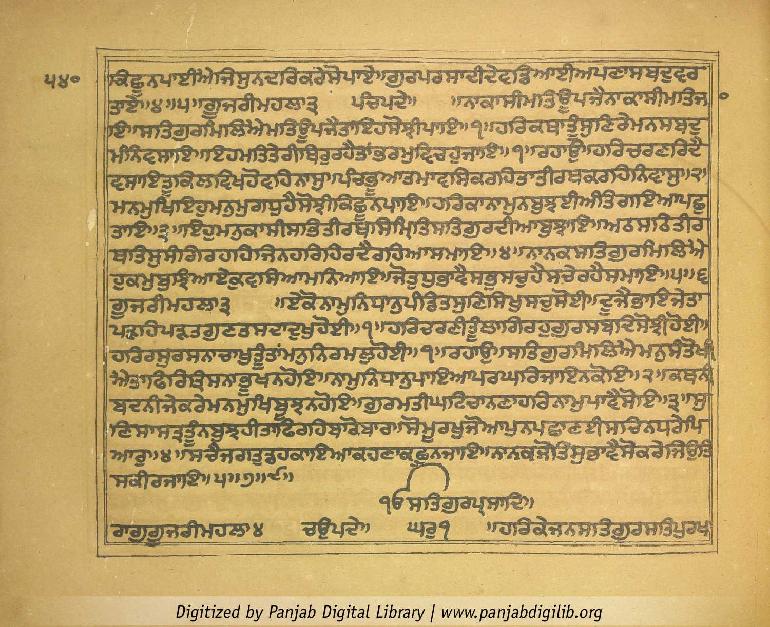 ੫੪੦
ਕਿਛੂਨਪਾਈਐਜਿਸੁਨਦਰਿਕਰੇਸੋਪਾਏ॥ਗੁਰਪਰਸਾਦੀਦੇਵਡਿਆਈਅਪਣਾਸਬਦੁਵਰ
ਤਾਏ॥੪॥੫॥ਗੂਜਰੀਮਹਲਾ੩ ਪੰਚਪਦੇ॥ ॥ਨਾਕਾਸੀਮਤਿਊਪਜੈਨਾਕਾਸੀਮਤਿਜ
ਾਇ॥ਸਤਿਗੁਰਮਿਲਿਐਮਤਿਊਪਜੈਤਾਇਹਸੋਝੀਪਾਇ॥੧॥ਹਰਿਕਥਾਤੂੰਸੁਣਿਰੇਮਨਸਬਦੁ
ਮੰਨਿਵਸਾਇ॥ਇਹਮਤਿਤੇਰੀਥਿਰੁਰਹੈਤਾਂਭਰਮੁਵਿਚਹੁਜਾਇ॥੧॥ਰਹਾਉ॥ਹਰਿਚਰਣਰਿਦੈ
ਵਸਾਇਤੂਕਿਲਵਿਖਹੋਵਹਿਨਾਸੁ॥ਪੰਚਭੂਆਤਮਾਵਸਿਕਰਹਿਤਾਤੀਰਥਕਰਹਿਨਿਵਾਸੁ॥੨॥
ਮਨਮੁਖਿਇਹੁਮਨੁਮੁਗਧੁਹੈਸੋਝੀਕਿਛੂਨਪਾਇ॥ਹਰਿਕਾਨਾਮੁਨਬੁਝਈਅੰਤਿਗਇਆਪਛੁ
ਤਾਇ॥੩॥ਇਹੁਮਨੁਕਾਸੀਸਭਿਤੀਰਥਸਿਮ੍ਰਿਤਿਸਤਿਗੁਰਦੀਆਬੁਝਾਇ॥ਅਠਸਠਿਤੀਰ
ਥਤਿਸੁਸੰਗਿਰਹਹਿਜਿਨਹਰਿਹਿਰਦੈਰਹਿਆਸਮਾਇ॥੪॥ਨਾਨਕਸਤਿਗੁਰਮਿਲਿਐ
ਹੁਕਮੁਬੁਝਿਆਏਕੁਵਸਿਆਮਨਿਆਇ॥ਜੋਤੁਧੁਭਾਵੈਸਭੁਸਚੁਹੈਸਚੇਰਹੈਸਮਾਇ॥੫॥੬
ਗੂਜਰੀਮਹਲਾ੩ ॥ਏਕੋਨਾਮੁਨਿਧਾਨੁਪੰਡਿਤਸੁਣਿਸਿਖੁਸਚੁਸੋਈ॥ਦੂਜੈਭਾਇਜੇਤਾ
ਪੜਹਿਪੜਤਗੁਣਤਸਦਾਦੁਖੁਹੋਈ॥੧॥ਹਰਿਚਰਣੀਤੂੰਲਾਗਿਰਹੁਗੁਰਸਬਦਿਸੋਝੀਹੋਈ॥
ਹਰਿਰਸੁਰਸਨਾਚਾਖੁਤੂੰਤਾਂਮਨੁਨਿਰਮਲੁਹੋਈ॥੧॥ਰਹਾਉ॥ਸਤਿਗੁਰਮਿਲਿਐਮਨੁਸੰਤੋਖੀ
ਐਤਾਫਿਰਿਤ੍ਰਿਸਨਾਭੂਖਨਹੋਇ॥ਨਾਮੁਨਿਧਾਨੁਪਾਇਆਪਰਘਰਿਜਾਇਨਕੋਇ॥੨॥ਕਥਨੀ
ਬਦਨੀਜੇਕਰੇਮਨਮੁਖਿਬੂਝਨਹੋਇ॥ਗੁਰਮਤੀਘਟਿਚਾਨਣਾਹਰਿਨਾਮੁਪਾਵੈਸੋਇ॥੩॥ਸੁ
ਣਿਸਾਸਤ੍ਰਤੂੰਨਬੁਝਹੀਤਾਫਿਰਹਿਬਾਰੋਬਾਰਾ॥ਸੋਮੂਰਖੁਜੋਆਪੁਨਪਛਾਣਈਸਚਿਨਧਰੇਪਿ
ਆਰੁ॥੪॥ਸਚੈਜਗਤੁਡਹਕਾਇਆਕਹਣਾਕਛੂਨਜਾਇ॥ਨਾਨਕਜੋਤਿਸੁਭਾਵੈਸੋਕਰੇਜਿਉਤਿ
ਸਕੀਰਜਾਇ॥੫॥੭॥੯॥
੧ਓਸਤਿਗੁਰਪ੍ਰਸਾਦਿ॥
ਰਾਗੁਗੂਜਰੀਮਹਲਾ੪ ਚਉਪਦੇ॥ ਘਰੁ੧ ॥ਹਰਿਕੇਜਨਸਤਿਗੁਰਸਤਿਪੁਰਖ
Digitized by Panjab Digital Library | www.panjabdigilib.org